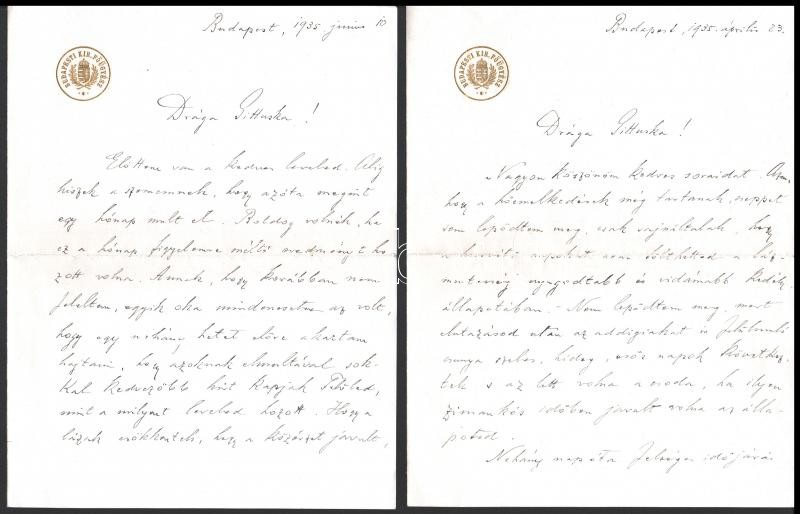 Budapest, 1935. június 10
BUDAPESTI KIR. FŐÜGYÉSZ
Drága Gittuska!
Előttem van a kedves leveled. Alig
hiszek a szememnek, hogy azóta megint
egy hónap mult el. Boldog volnék, ha
ez a hónap figyelemre méltó eredményt ho-
zott volna. Annak, hogy korábban nem
feleltem, egyik oka mindenesetre az volt,
hogy egy néhány hetet előre akartam
hajtani, hogy azoknak elmultával sok-
kal kedvezőbb hírt kapjak Tőled,
mint a milyent leveled hozott. Hogy a
lázak csökkentek, hogy a közérzet javult,
Budapest, 1935. április 23.
BUDAPESTI KIR. FŐÜGYÉSZ
Drága Gittuska!
Nagyon köszönöm kedves soraidat. Azon,
hogy a hőemelkedések még tartanak, éppen
sem lepődtem meg, csak sajnáltalak, hogy
a husvéti napokat nem töltötted a láz-
mentesség nyugodtabb és vidámabb kedély-
állapotában. - Nem lepődtem meg, mert
elutazásod után az addigiakat is felülmuló
csunya szeles, hideg, esős napok következ-
tek s az lett volna a csoda, ha ilyen
zimankós időben javult volna az álla-
potod.
Néhány nap óta felséges időjárás